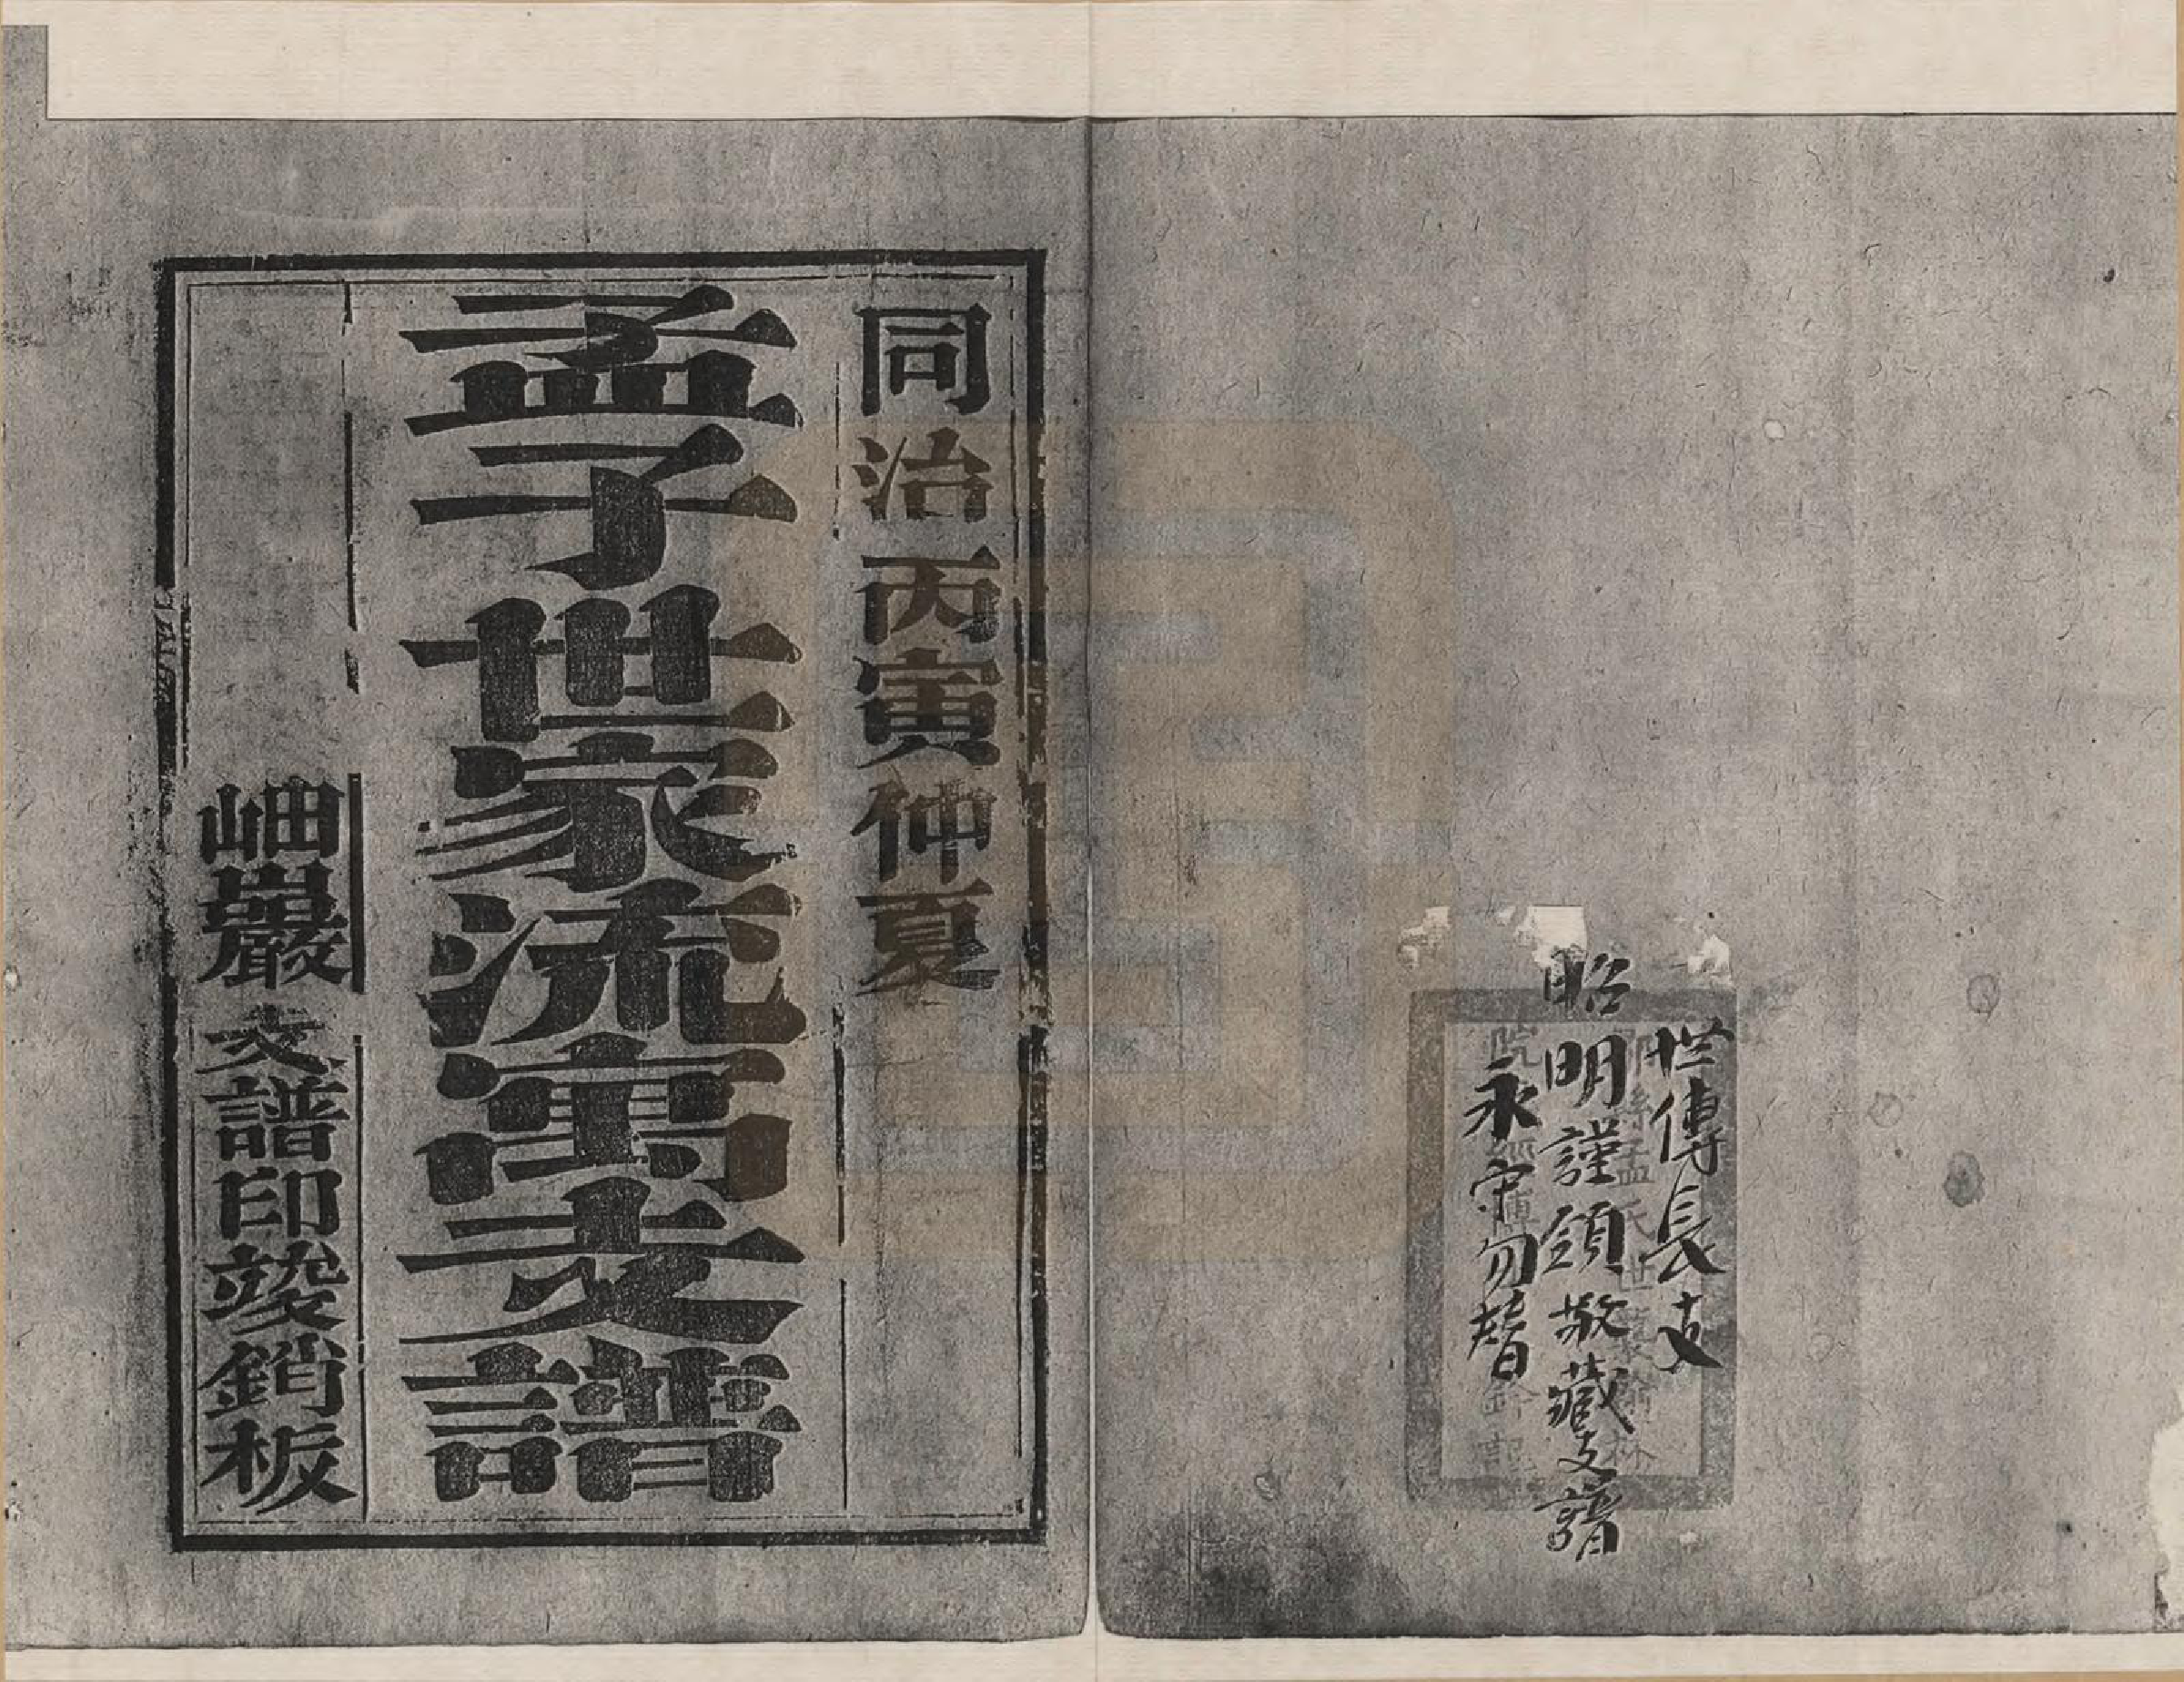 世傳長支
昭明謹領敬藏支譜
永守勿替
同治丙寅仲夏
孟子世家流寓支譜
岫巖支譜印竣銷板